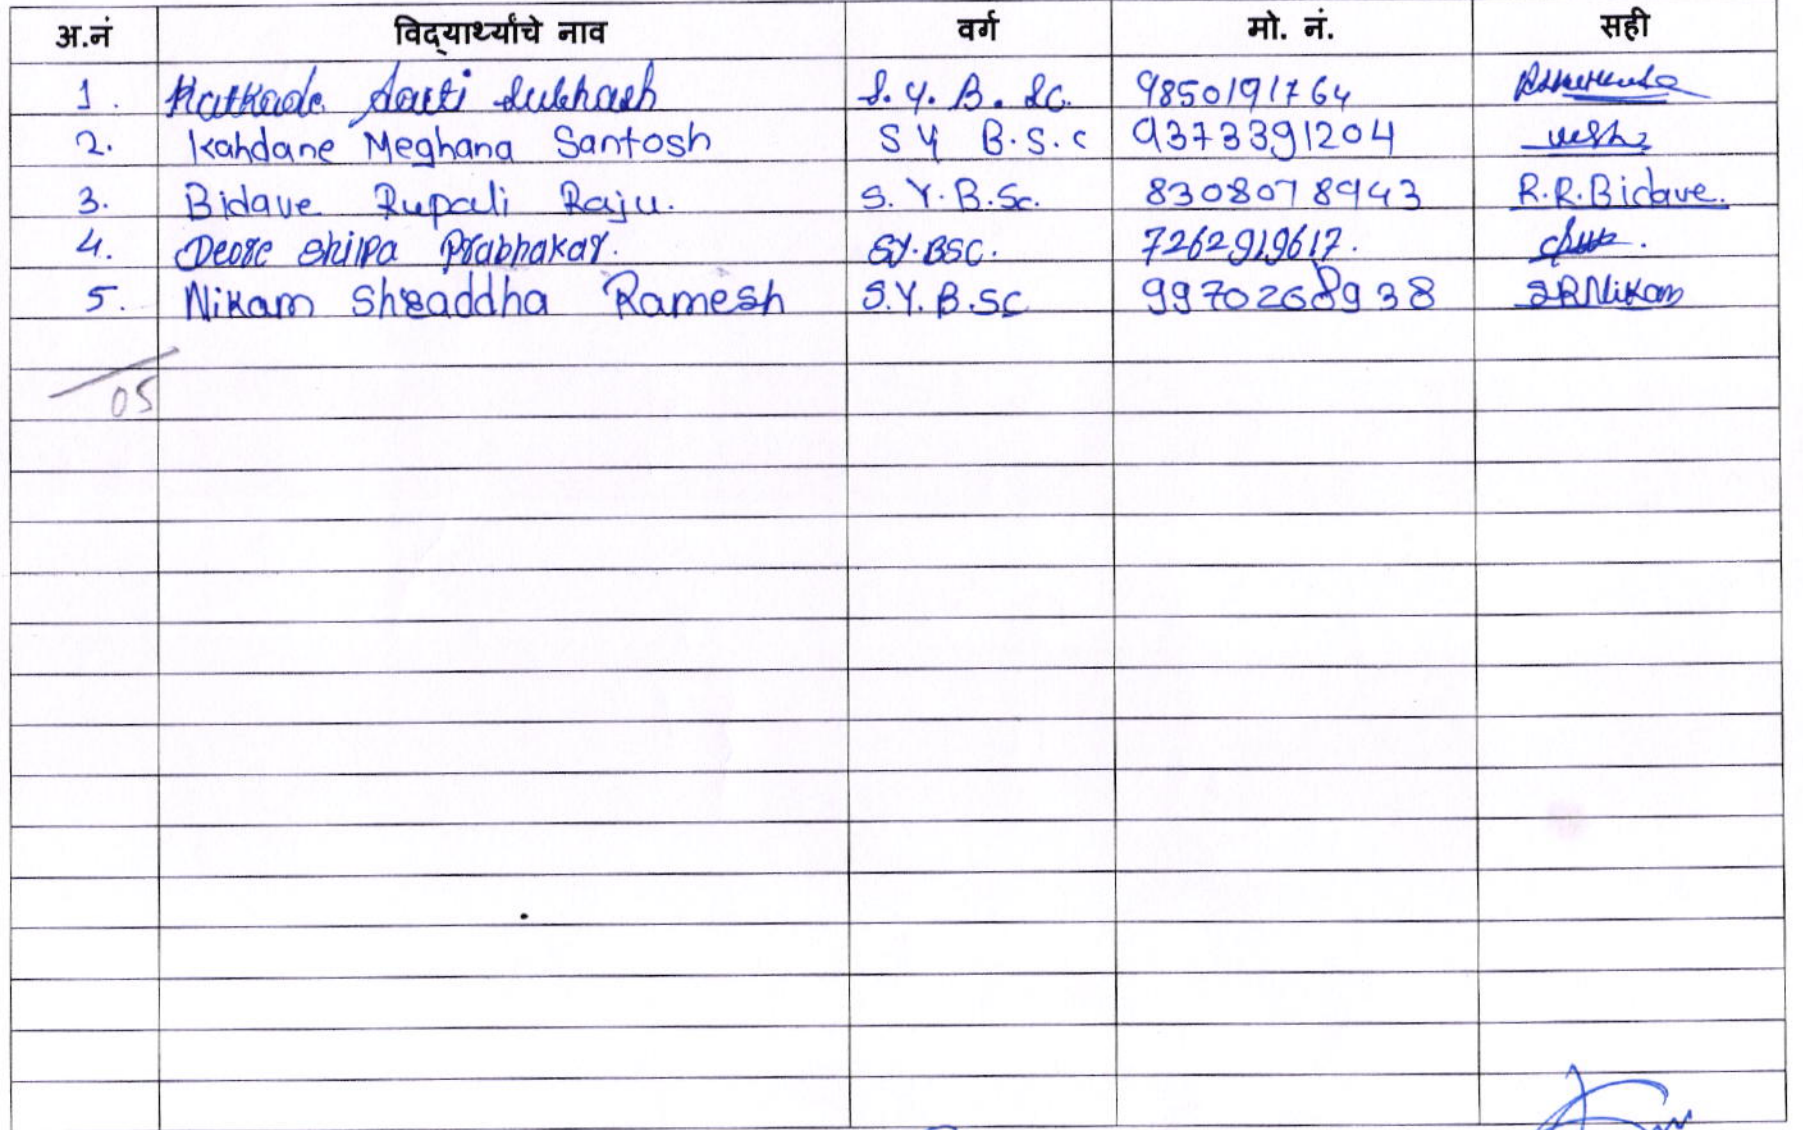 अ.नं विद्यार्थ्यांचे नाव वर्ग मो. नं. सही
1. Katkade Aarti Subhash S.Y.B.Sc. 9850191764
2. Kahdane Meghana Santosh SY B.S.c 9373391204
3. Bidave Rupali Raju. S.Y.B.Sc. 8308078943 R.R.Bidave.
4. Deore Shilpa Prabhakar. SY.BSC. 7262919617.
5. Nikam Shraddha Ramesh S.Y.B.SC 9970268938 SRNikam
05